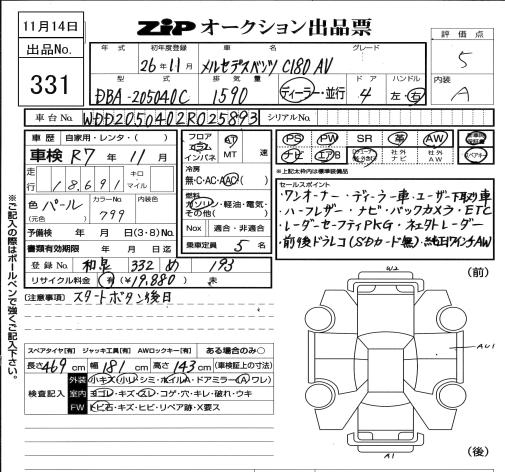 11月14日
ZIP オークション出品票
出品No.
331
評価点
5
内装
A
年式 初年度登録 車名 グレード
26年11月 メルセデスベンツ C180 AV
型式 排気量 ドア ハンドル
DBA-205040C 1590 ディーラー・並行 4 左・右
車台No. WDD2050402R025893 シリアルNo.
車歴 自家用・レンタ・( )
車検 R7年11月
走行 18,691 キロ マイル
色 パール (元色) カラーNo. 799 内装色
予備検 年 月 日(3・8)No.
書類有効期限 年 月 日迄
登録No. 和泉 332 め 193
リサイクル料金 有(¥19,880) 未
フロア コラム インパネ AT MT 速
冷房 無・C・AC・AAC
燃料 ガソリン・軽油・電気・その他( )
Nox 適合・非適合
乗車定員 5名
PS PW SR 革 AW
ナビ エアB 社外ナビ 社外AW
*上記太枠内は標準装備品
セールスポイント
・ワンオーナー・ディーラー車・ユーザー下取り車
・ハーフレザー・ナビ・バックカメラ・ETC
・レーダーセーフティPKG・
・前後ドラレコ(SDカード無)・
(注意事項) スタートボタン後日
スペアタイヤ[有] ジャッキ工具[有] AWロックキー[有] ある場合のみ○
長さ469cm 幅181cm 高さ143cm (車検証上の寸法)
検査記入
外装 小キズ(小)・シミ・ホイルA・ドアミラー(A)ワレ)
室内 ヨゴレ・キズ・スレ・コゲ・穴・キレ・破れ・ウキ
FW トビ石・キズ・ヒビ・リペア跡・X要ス
※ご記入の際はボールペンで強くご記入下さい。
(前)
A1
(後)